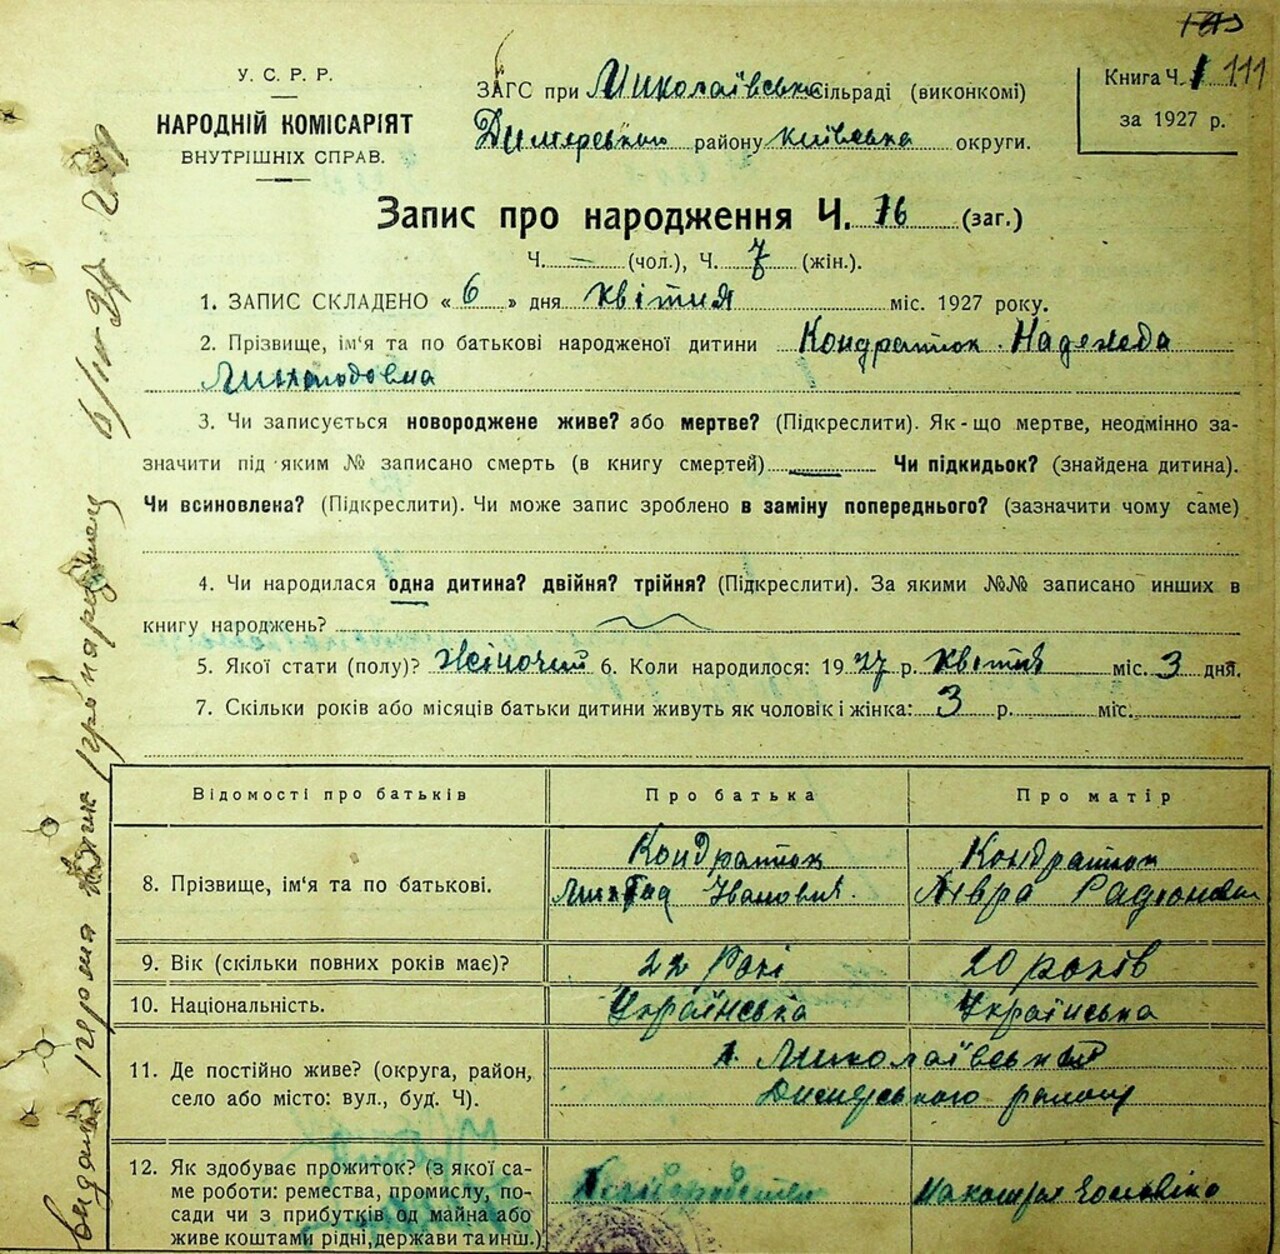 У. С. Р. Р.
НАРОДНІЙ КОМІСАРІЯТ
ВНУТРІШНІХ СПРАВ.
ЗАГС при Миколаївське сільраді (виконкомі)
Димерського району Київська округи.
Книга Ч. 1 111
за 1927 р.
Запис про народження Ч. 16 (заг.)
Ч. — (чол.), Ч. 7 (жін.).
1. ЗАПИС СКЛАДЕНО « 6 » дня квітня міс. 1927 року.
2. Прізвище, ім'я та по батькові народженої дитини Кондраток Надежда
3. Чи записується новороджене живе? або мертве? (Підкреслити). Як-що мертве, неодмінно за-
значити під яким № записано смерть (в книгу смертей) Чи підкидьок? (знайдена дитина).
Чи всиновлена? (Підкреслити). Чи може запис зроблено в заміну попереднього? (зазначити чому саме)
4. Чи народилася одна дитина? двійня? трійня? (Підкреслити). За якими №№ записано инших в
книгу народжень?
5. Якої стати (полу)? жіночий 6. Коли народилося: 1927 р. квітня міс. 3 дня.
7. Скільки років або місяців батьки дитини живуть як чоловік і жінка: 3 р. міс.
Відомості про батьків Про батька Про матір
8. Прізвище, ім'я та по батькові. Кондраток Кондраток
Іванович
9. Вік (скільки повних років має)? 22 Рокі 20 років
10. Національність. Українська Українська
11. Де постійно живе? (округа, район,
село або місто: вул., буд. Ч).
Димерського району
12. Як здобуває прожиток? (з якої са-
ме роботи: ремества, промислу, по-
сади чи з прибутків од майна або
живе коштами рідні, держави та инш.)